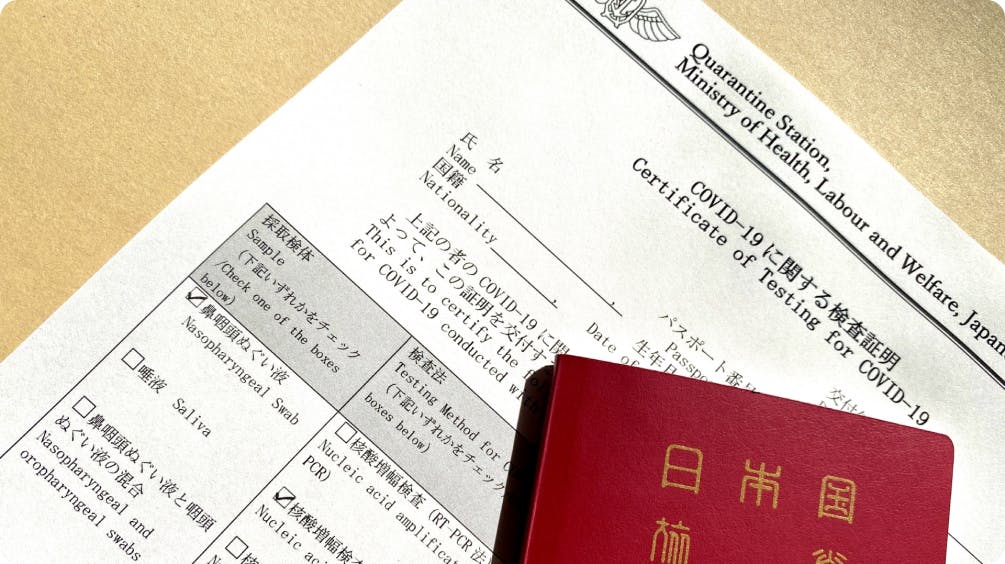 Quarantine Station,
Ministry of Health, Labour and Welfare, Japan
COVID-19に関する検査証明
Certificate of Testing for COVID-19
氏 名
Name
国籍
Nationality
パスポート番号
Passpo
生年月
Date of
交付
上記の者のCOVID-19に関
よって、この証明を交付す
This is to certify the fo
for COVID-19 conducted with
採取検体
Sample
(下記いずれかをチェック
/Check one of the boxes
below)
検査法
Testing Method for C
(下記いずれかをチェック
boxes below)
鼻咽頭ぬぐい液
Nasopharyngeal Swab
唾液 Saliva
鼻咽頭ぬぐい液と咽頭
ぬぐい液の混合
Nasopharyngeal and
oropharyngeal swabs
核酸増幅検査 (RT-PCR法
Nucleic acid amplificat
PCR)
核酸増幅検査
Nucleic acid
核
日本国
旅券